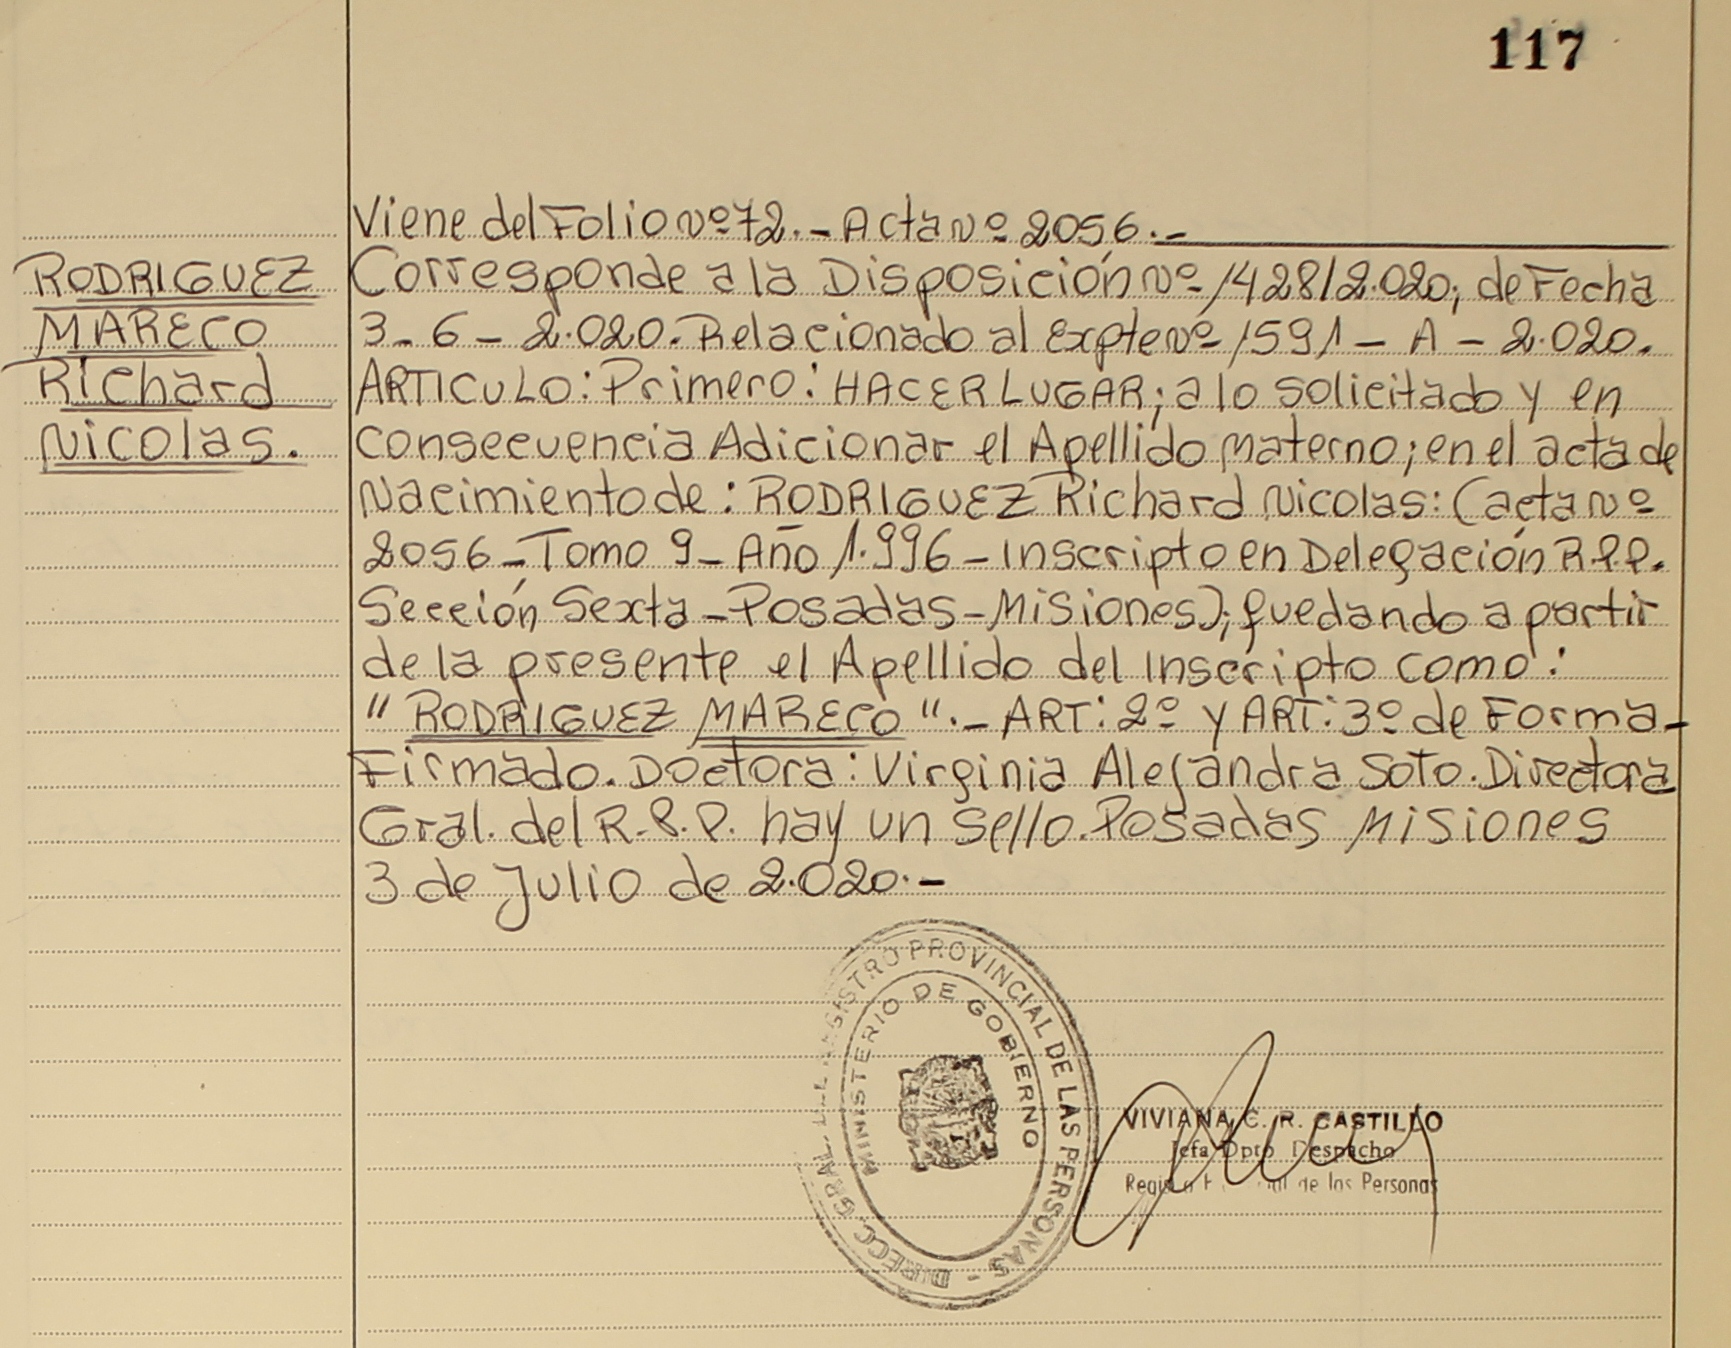 117
RODRIGUEZ
MARECO
Richard
Nicolas.
Viene del Folio Nº 72.- Acta Nº 2056.-
Corresponde a la Disposición Nº 1428/2.020; de Fecha
3-6-2.020. Relacionado al Expte Nº 1591-A-2.020.
ARTICULO: Primero: HACER LUGAR; a lo solicitado y en
consecuencia Adicionar el Apellido Materno; en el acta de
Nacimiento de: RODRIGUEZ Richard Nicolas: (acta Nº
2056-Tomo 9-Año 1.996-Inscripto en Delegación R.P.P.
Sección Sexta-Posadas-Misiones); quedando a partir
de la presente el Apellido del Inscripto como:
"RODRIGUEZ MARECO".- ART: 2º y ART: 3º de Forma-
Firmado. Doctora: Virginia Alejandra Soto. Directora
Gral. del R.P.P. hay un Sello. Posadas Misiones
3 de Julio de 2.020.-
DIRECC. GRAL. DEL REGISTRO PROVINCIAL DE LAS PERSONAS -
MINISTERIO DE GOBIERNO
VIVIANA C. R. CASTILLO
Jefa Dpto Despacho
de las Personas